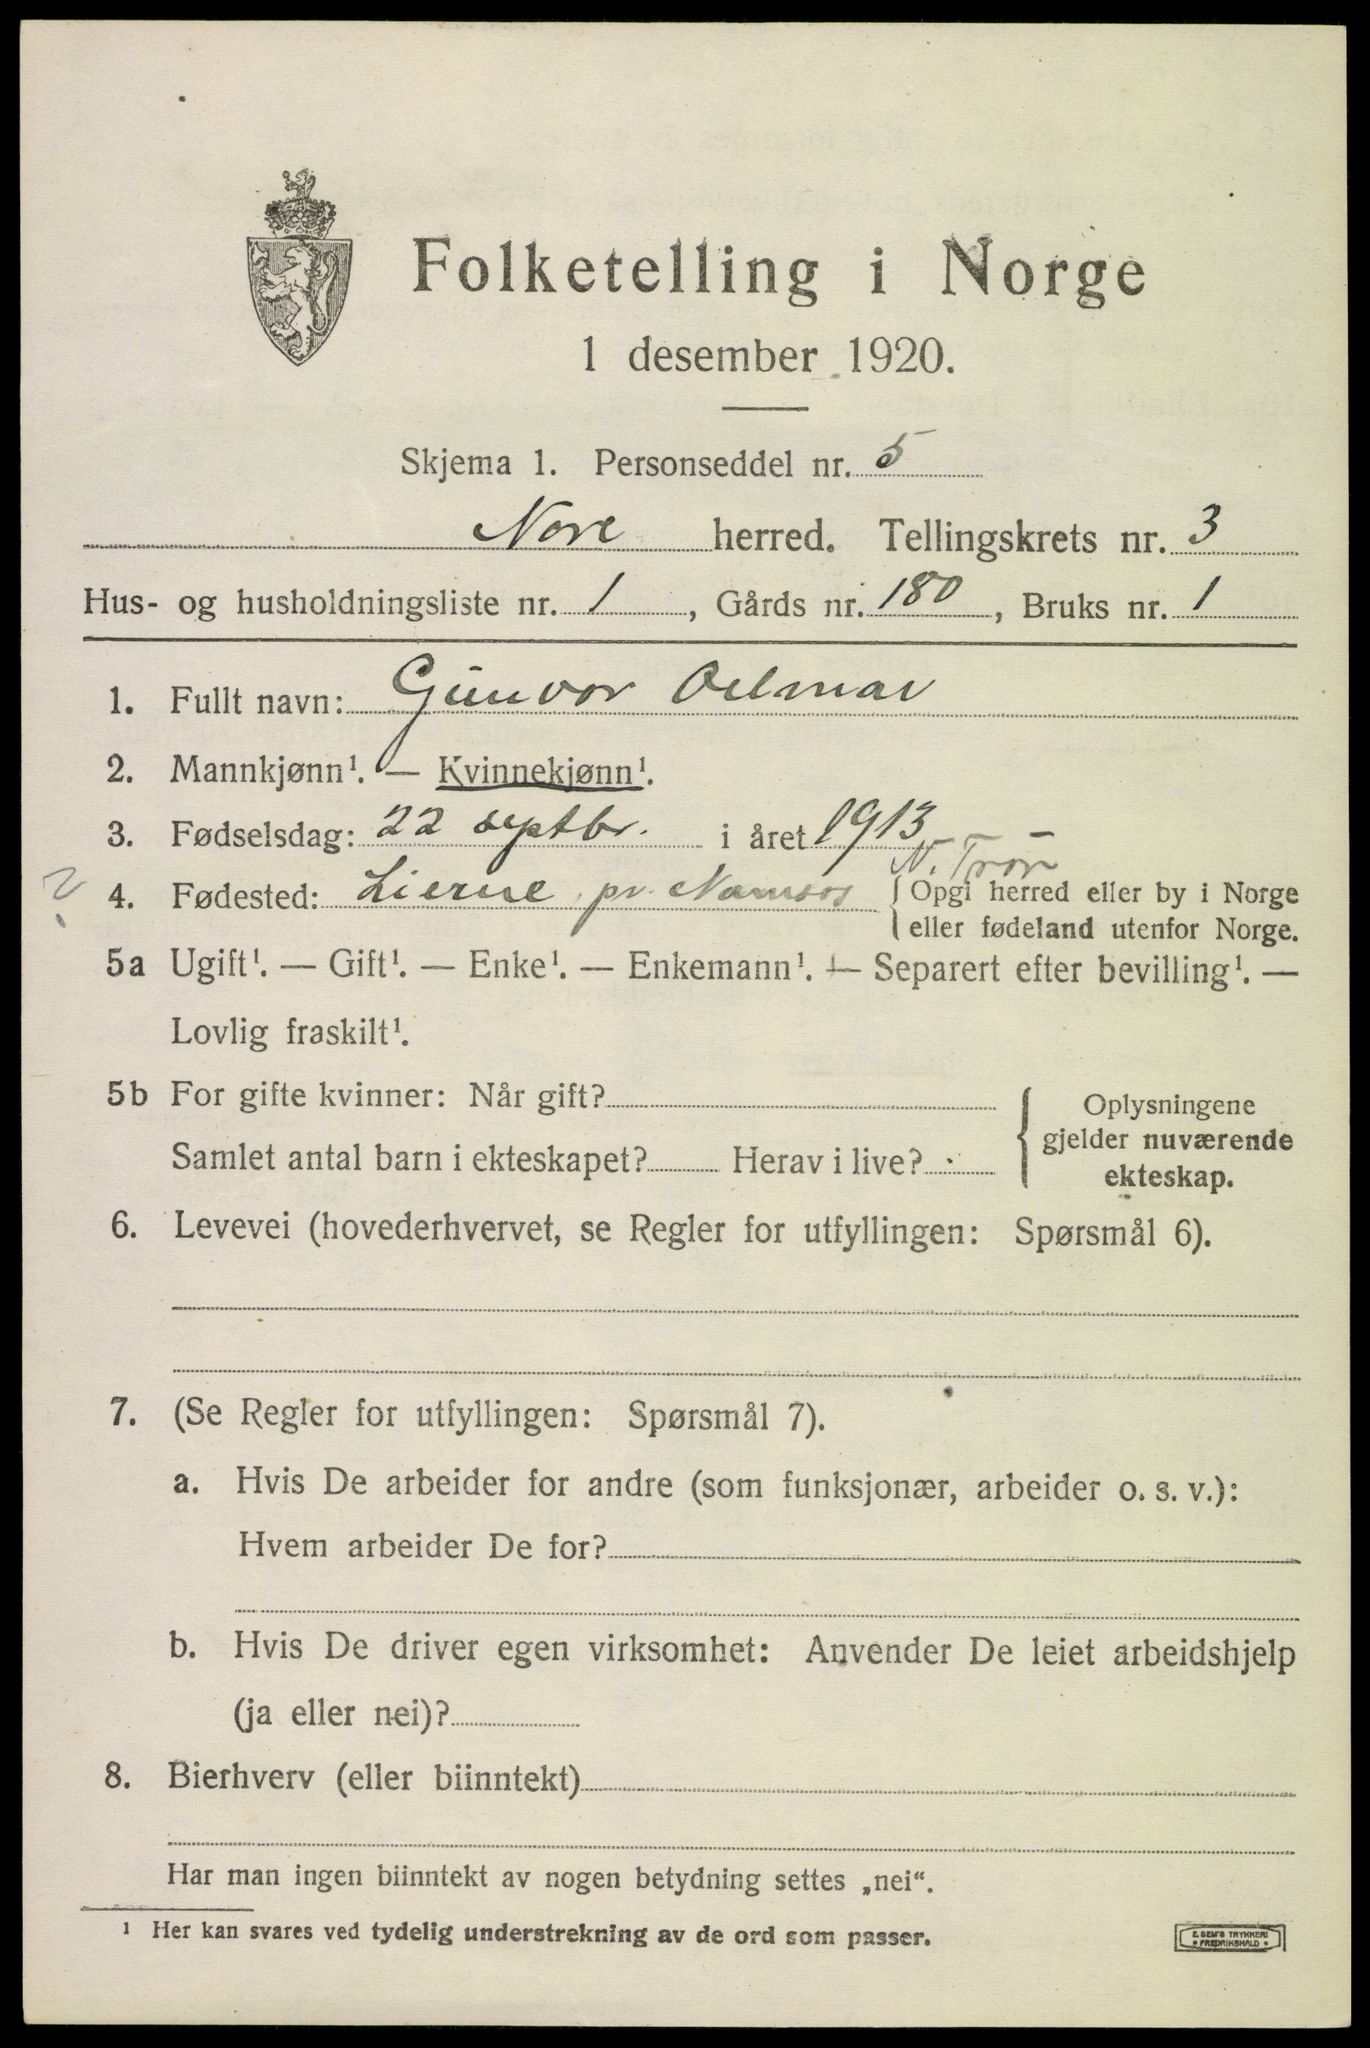 Folketelling i Norge
1 desember 1920.
Skjema 1. Personseddel nr. 5
Nore herred. Tellingskrets nr. 3
Hus- og husholdningsliste nr. 1, Gårds nr. 180, Bruks nr. 1
1. Fullt navn: Gunvor Oelmar
2. Mannkjønn¹. — Kvinnekjønn¹.
3. Fødselsdag: 22 septbr. i året 1913
N. Trön
? 4. Fødested: Lierne pr. Namsos { Opgi herred eller by i Norge
eller fødeland utenfor Norge.
5a Ugift¹. — Gift¹. — Enke¹. — Enkemann¹. — Separert efter bevilling¹. —
Lovlig fraskilt¹.
5b For gifte kvinner: Når gift?
Samlet antal barn i ekteskapet? Herav i live?
Oplysningene
gjelder nuværende
ekteskap.
6. Levevei (hovederhvervet, se Regler for utfyllingen: Spørsmål 6).
7. (Se Regler for utfyllingen: Spørsmål 7).
a. Hvis De arbeider for andre (som funksjonær, arbeider o. s. v.):
Hvem arbeider De for?
b. Hvis De driver egen virksomhet: Anvender De leiet arbeidshjelp
(ja eller nei)?
8. Bierhverv (eller biinntekt)
Har man ingen biinntekt av nogen betydning settes „nei“.
¹ Her kan svares ved tydelig understrekning av de ord som passer.
E. SEM'S TRYKKERI
• FREDRIKSHALD •